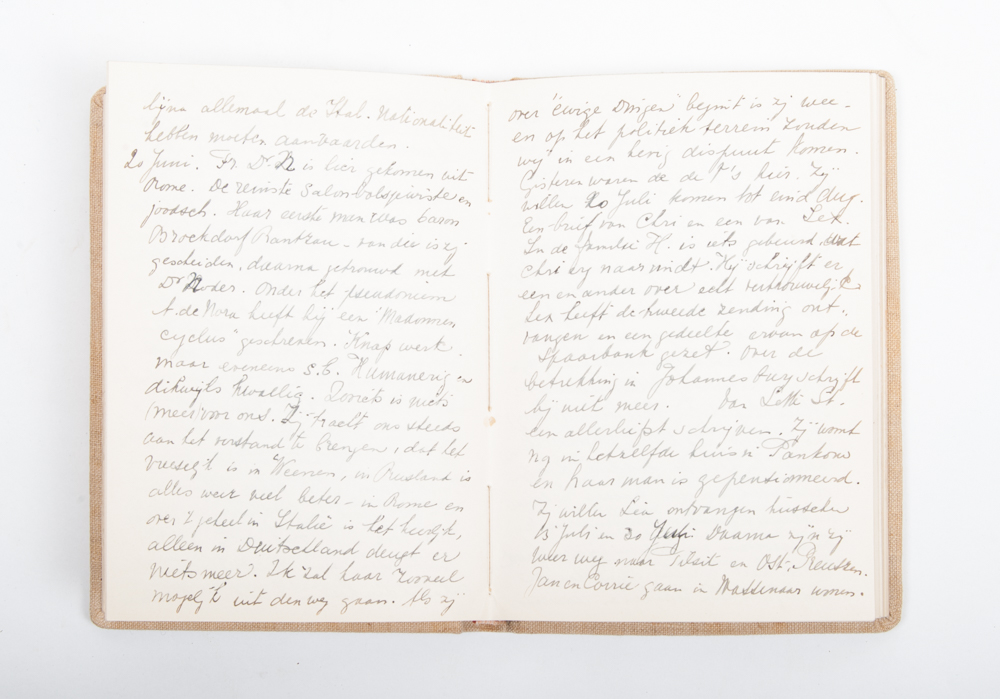 bijna allemaal de Ital. Nationaliteit
hebben moeten aanvaarden.
20 Juni. Fr. Dr. N is hier gekomen uit
Rome. De reinste Salonbolsjewiste en
joodsch. Haar eerste man was baron
Brockdorf Rantzau – van die is zij
gescheiden, daarna getrouwd met
Dr Noder. Onder het pseudoniem
A. de Nora heeft hij een "Madonnen
cyclus" geschreven. Knap werk.
maar eveneens s.b. Humanerig en
dikwijls kwallig. Zoiets is niets
meer voor ons. Zij tracht ons steeds
aan het verstand te brengen, dat het
vreselijk is in Weenen, in Rusland is
alles weer veel beter – in Rome en
over 't geheel in Italië is het heerlijk,
alleen in Duitschland deugt er
niets meer. Ik zal haar zooveel
mogelijk uit den weg gaan. Als zij
over "ewige Dingen" begint is zij wee-
en op het politiek terrein zouden
wij in een hevig dispuut komen.
Gisteren waren de de V's hier. Zij
willen 20 Juli komen tot eind Aug.
Een brief van Chri en een van Lex.
In de familie H. is iets gebeurd wat
Chri erg naar vindt. Hij schrijft er
een en ander over echt vertrouwelijk
Lex heeft de tweede zending ont-
vangen en een gedeelte ervan op de
Spaarbank gezet. Over de
betrekking in Johannesburg schrijft
hij niet meer. Van Letti St.
een allerliefst schrijven. Zij woont
nog in hetzelfde huis in Pankow
en haar man is gepensionneerd.
Zij willen Lia ontvangen tusschen
15 Juli en 20 Juli Daarna zijn zij
weer weg naar Tilsit en Ost-Preussen.
Jan en Corrie gaan in Wassenaar wonen.